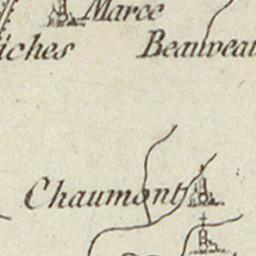 Marce
iches Beauveau
Chaumont